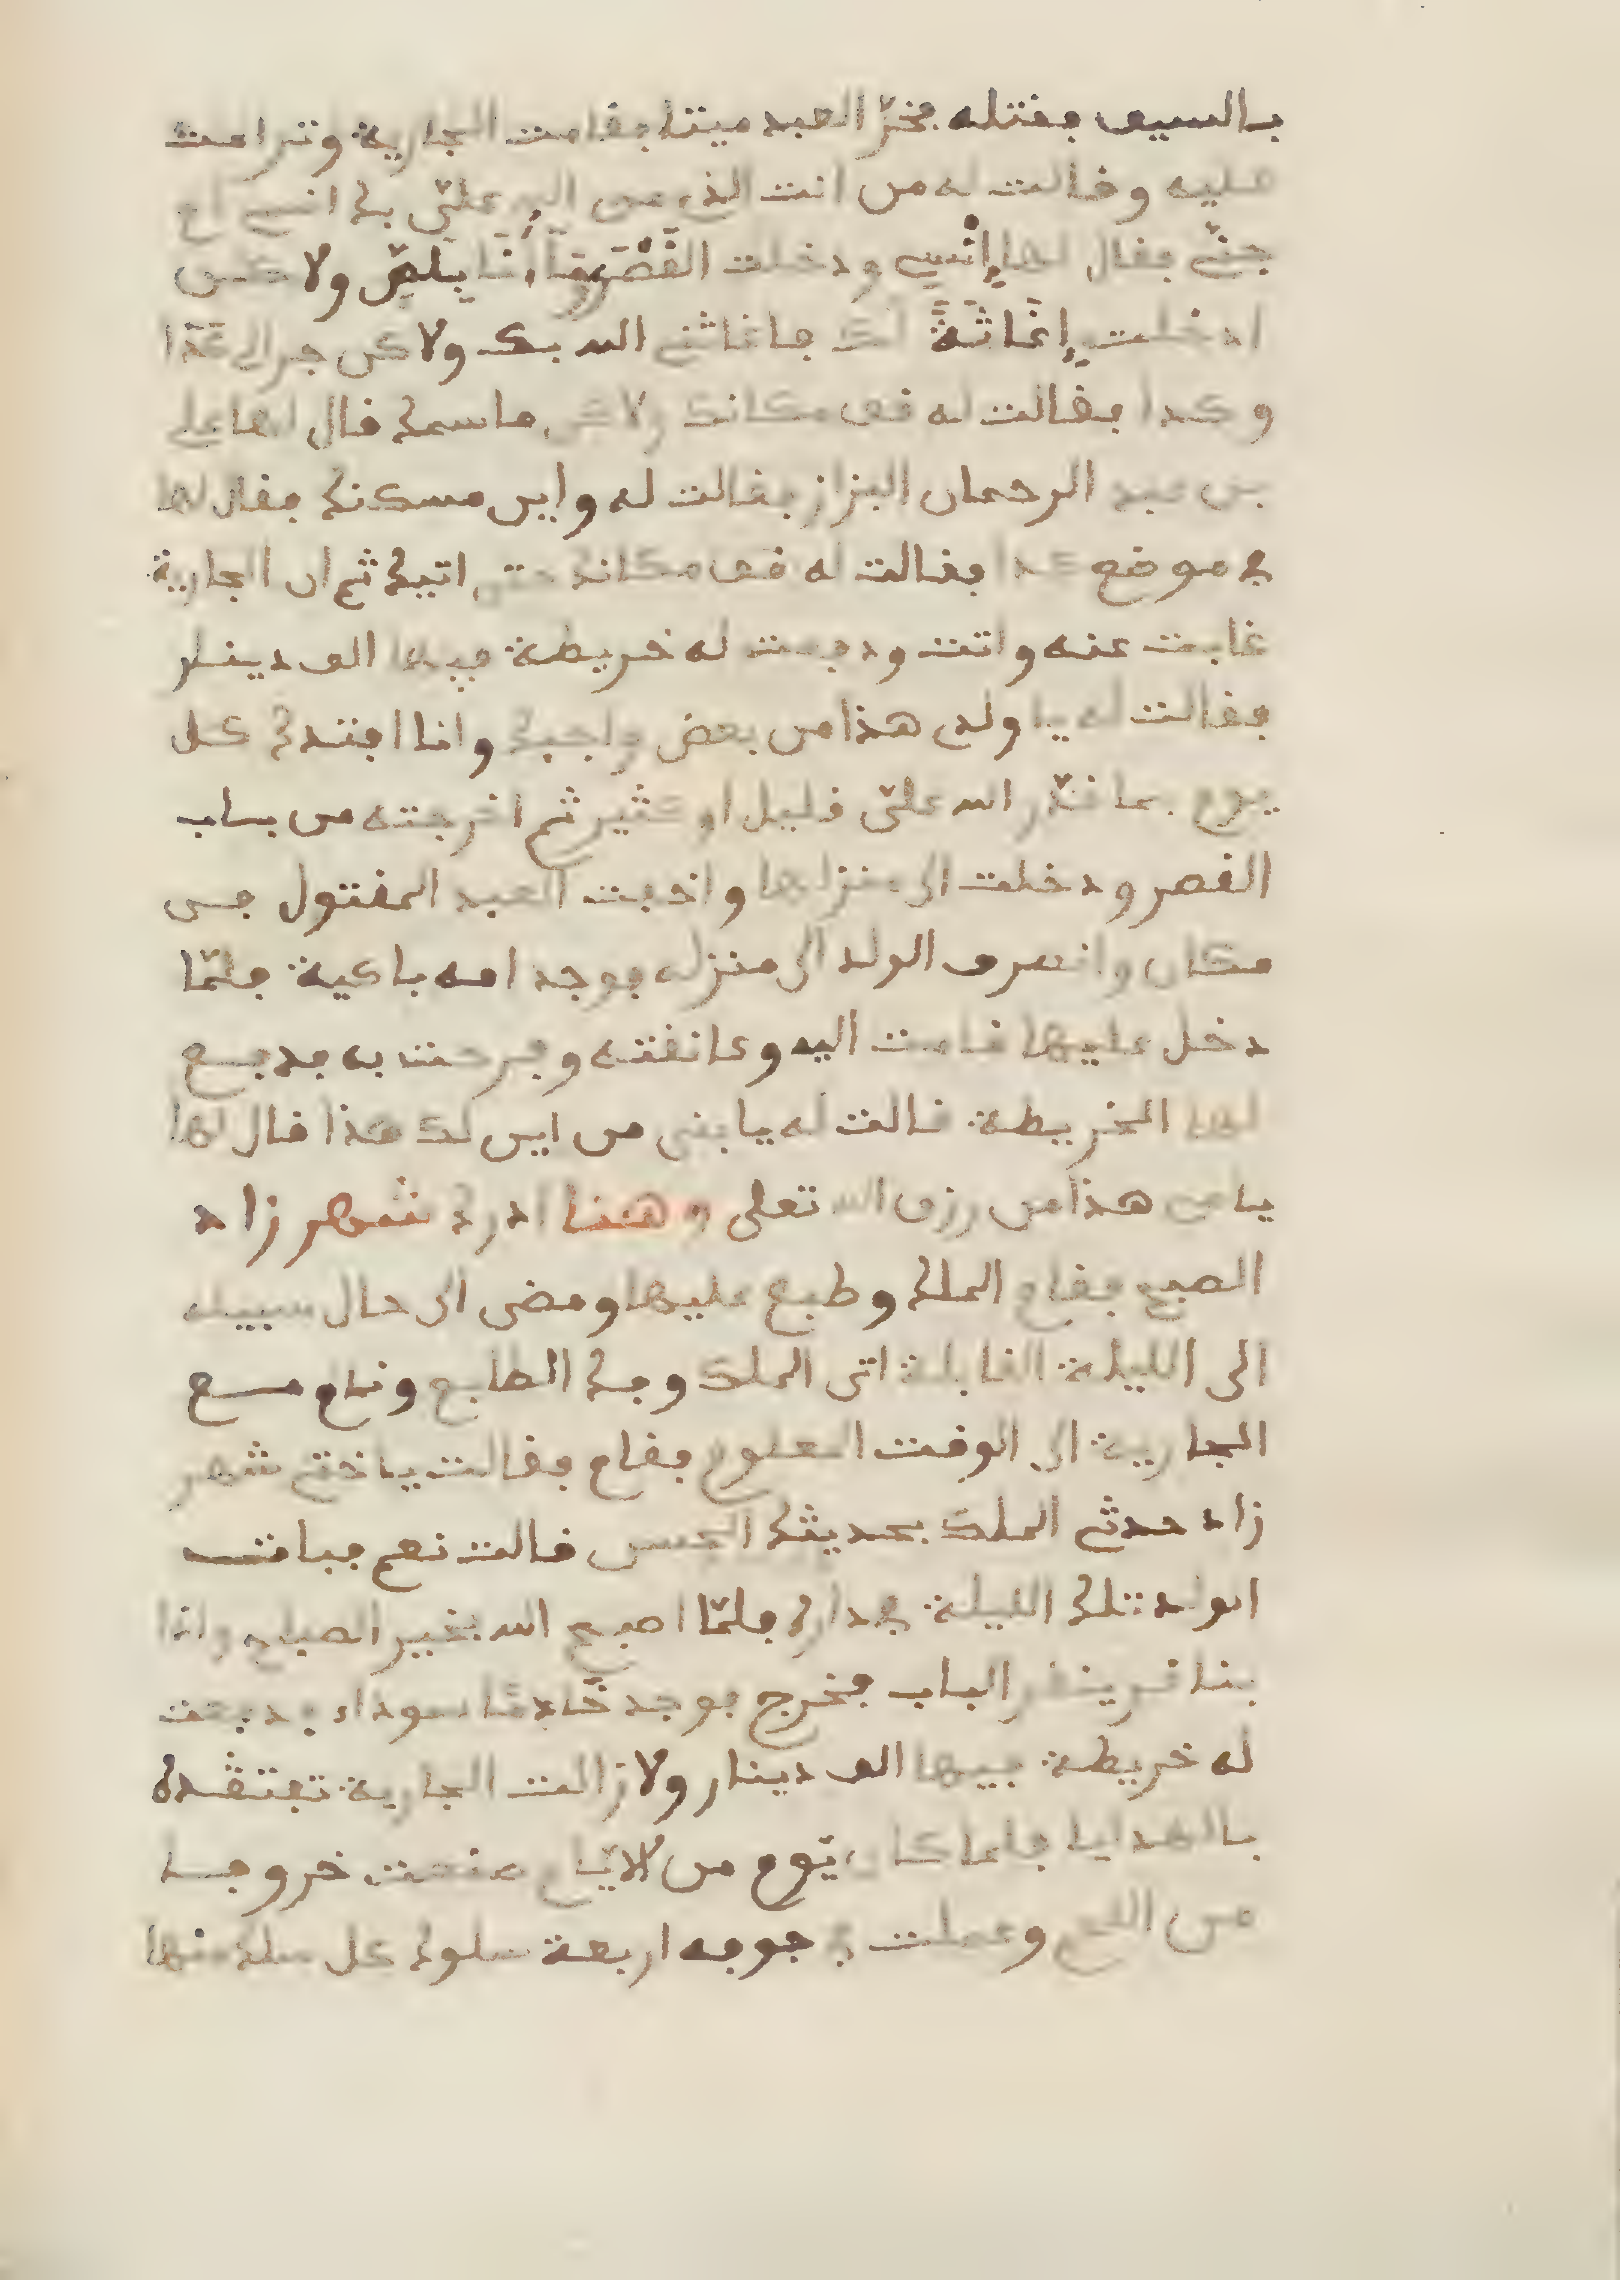 بالسيف فقتله فخرّ العبد ميتا فقامت الجارية وترامت
عليه وقالت له من انت الذي من الله عليّ بك انسي ام
جنّي فقال لها إنْسِي ودخلت القَصْرَ ولا كن
ادخلت إغَاثَةً لك فاغاثني الله بك ولاكن جرالي كَذَا
وكذا فقالت له قف مكانك ولاكن ماسمك قال لها علي
بن عبد الرحمان البزاز فقالت له واين مسكنك فقال لها
في موضع كذا فقالت له قف مكانك حتى اتيك ثم ان الجارية
غابت عنه واتت ودفعت له خريطة فيها الف دينار
فقالت له يا ولدي هذا من بعض واجبك وانا افتقدك كل
يوم بما قدّر الله عليّ قليل او كثير ثم اخرجته من باب
القصر ودخلت الى منزلها واخفت العبد المقتول في
مكان وانصرف الولد الى منزله فوجد امه باكية فلمّا
دخل عليها قامت اليه وعانقته وفرحت به فدفع
لها الخريطة قالت له يا بني من اين لك هذا قال لها
يامي هذا من رزق الله تعلى وهنا ادرك شهرزاد
الصبح فقام الملك وطبع عليها ومضى الى حال سبيله
الى الليلة القابلة اتى الملك وفك الطابع ونام مع
الجارية الى الوقت المعلوم فقام فقالت ياختي شهر
زاد حدثي الملك بحديثك الحسن قالت نعم فبات
الولد تلك الليلة في داره فلمّا اصبح الله بخير الصباح واذا
بنا قر ينقر الباب فخرج فوجد خَادِمًا سوداء فدفعت
له خريطة فيها الف دينار ولا زالت الجارية تفتقده
بالهدايا فلما كان يَوم من الايّام صنعت خروفا
من اللحم وعملت في جوفه اربعة سلوك كل سلك منها